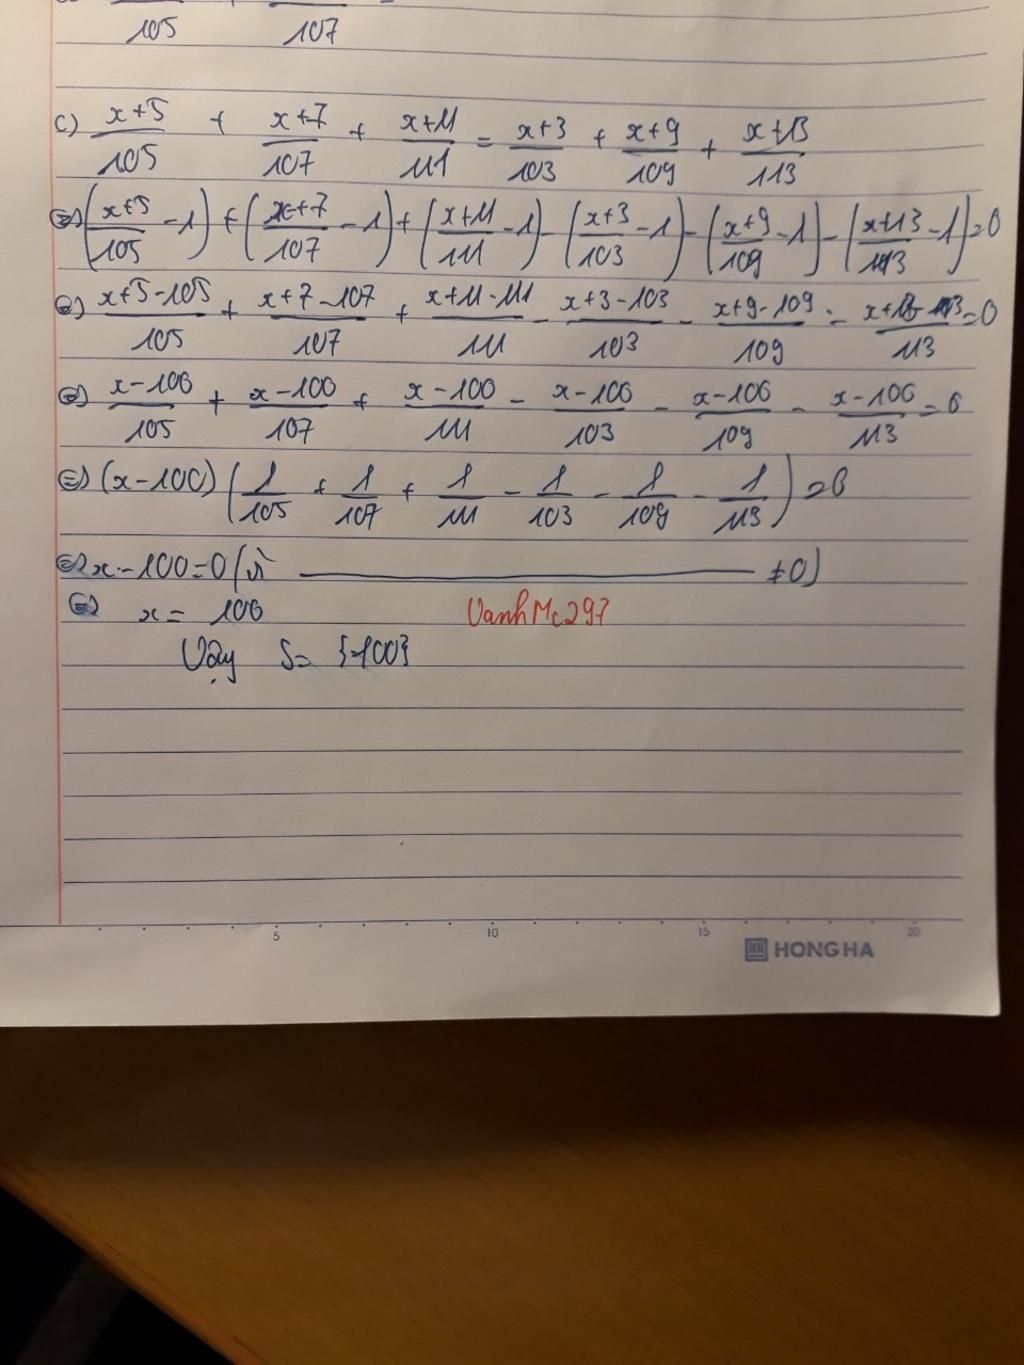 105 107
c) x+5/105 + x+7/107 + x+11/111 = x+3/103 + x+9/109 + x+13/113
⇔ (x+5/105 - 1) + (x+7/107 - 1) + (x+11/111 - 1) - (x+3/103 - 1) - (x+9/109 - 1) - (x+13/113 - 1) = 0
⇔ x+5-105/105 + x+7-107/107 + x+11-111/111 - x+3-103/103 - x+9-109/109 - x+13-113/113 = 0
⇔ x-100/105 + x-100/107 + x-100/111 - x-100/103 - x-100/109 - x-100/113 = 0
⇔ (x-100) (1/105 + 1/107 + 1/111 - 1/103 - 1/109 - 1/113) = 0
⇔ x-100=0 (vì ——— ≠0)
⇔ x = 100
VanhMc297
Vậy S= {100}
5 10 15 20
HONG HA